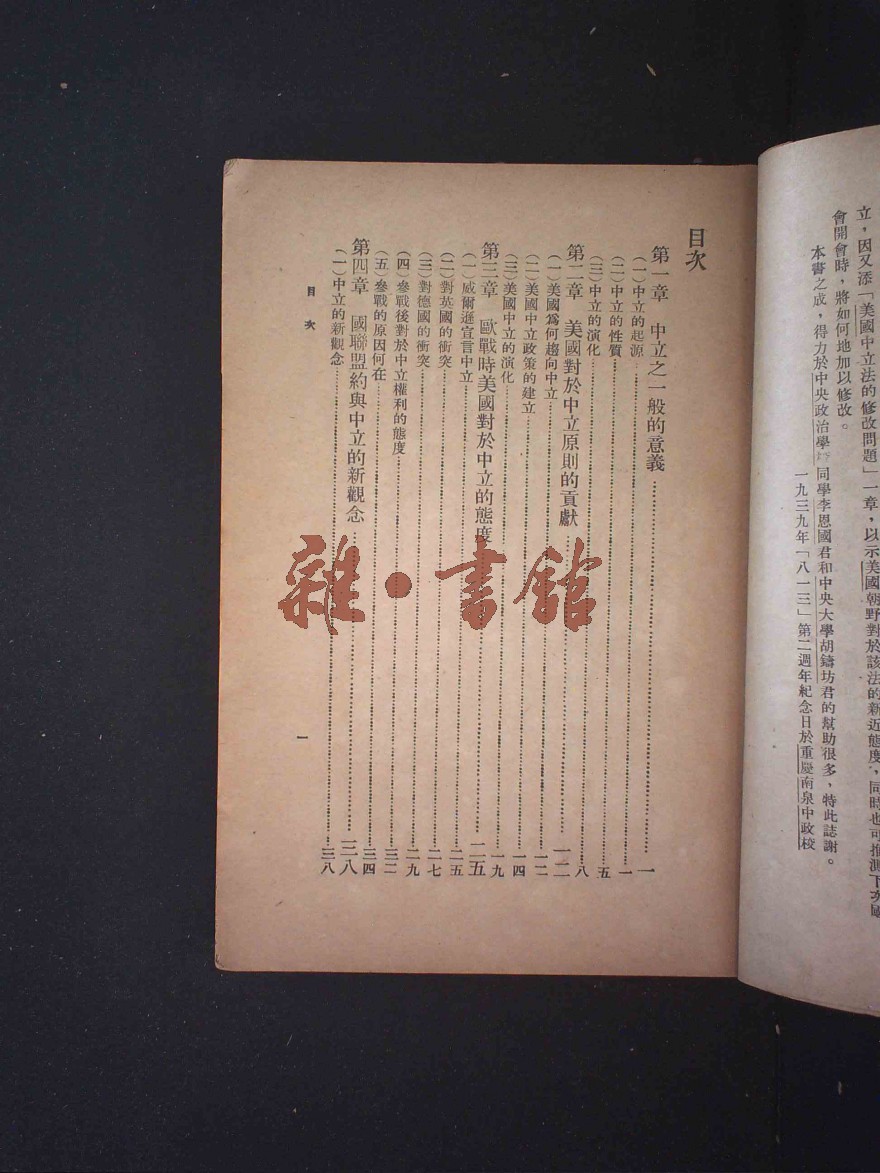 立，因又添「美國中立法的修改問題」一章，以示美國朝野對於該法的新近態度，同時也可推測下次國
會開會時，將如何地加以修改。
本書之成，得力於中央政治學 同學李恩國君和中央大學胡鑄坊君的幫助很多，特此誌謝。
一九三九年「八一三」第二週年紀念日於重慶南泉中政校
目次
第一章 中立之一般的意義……一
(一)中立的起源……一
(二)中立的性質……五
(三)中立的演化……八
第二章 美國對於中立原則的貢獻……一二
(一)美國爲何趨向中立……一二
(二)美國中立政策的建立……一四
(三)美國中立的演化……一九
第三章 歐戰時美國對於中立的態度……二五
(一)威爾遜宣言中立……二五
(二)對英國的衝突……二七
(三)對德國的衝突……二九
(四)參戰後對於中立權利的態度……三二
(五)參戰的原因何在……三四
第四章 國聯盟約與中立的新觀念……三八
(一)中立的新觀念……三八
目次
一
雜·書館